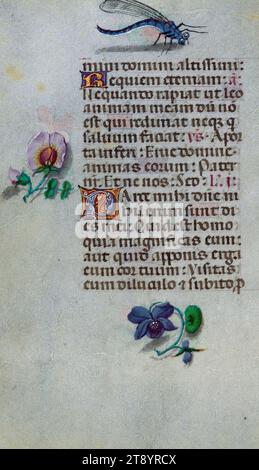 mini domini altissimi:
Requiem eternam: a
Nequando rapiat ut leo
animam meam dū nō
est qui redimat neq̃ q̃
saluum faciat: vs Apor
ta inferi: Erue domine
animas eorum: Pater
nr̄: Et ne nos: Scd: L: j:
Tant mihi dñe ni
hil enim sunt di
es mei: Quid est homo
quia magnificas eum:
aut quid apponis erga
eum cor tuum: Visitas
eum diluculo ⁊ subito ꝓ
alamy
alamy
Image ID: 2T8YRCX
www.alamy.com